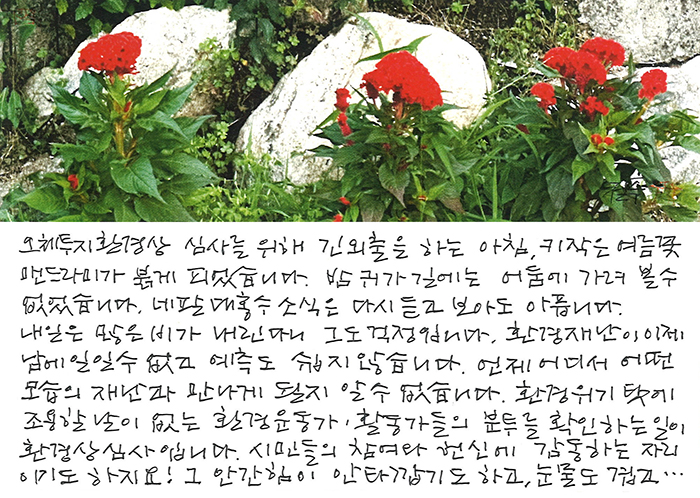 오체투지환경상 심사를 위해 긴외출을 하는 아침, 키작은 여름꽃
맨드라미가 붉게 피었습니다. 밤 귀가길에는 어둠에 가려 볼수
없었습니다. 네팔 대홍수 소식은 다시 듣고 보아도 아픕니다.
내일은 많은 비가 내린다니 그도 걱정입니다. 환경재난이 이제
남에 일일수 없고 예측도 쉽지 않습니다. 언제 어디서 어떤
모습의 재난과 만나게 될지 알수 없습니다. 환경위기 탓에
조용할 날이 없는 환경운동가·활동가들의 분투를 확인하는 일이
환경상 심사입니다. 시민들의 참여와 헌신에 감동하는 자리
이기도 하지요! 그 안간힘이 안타깝기도 하고, 눈물도 겹고…